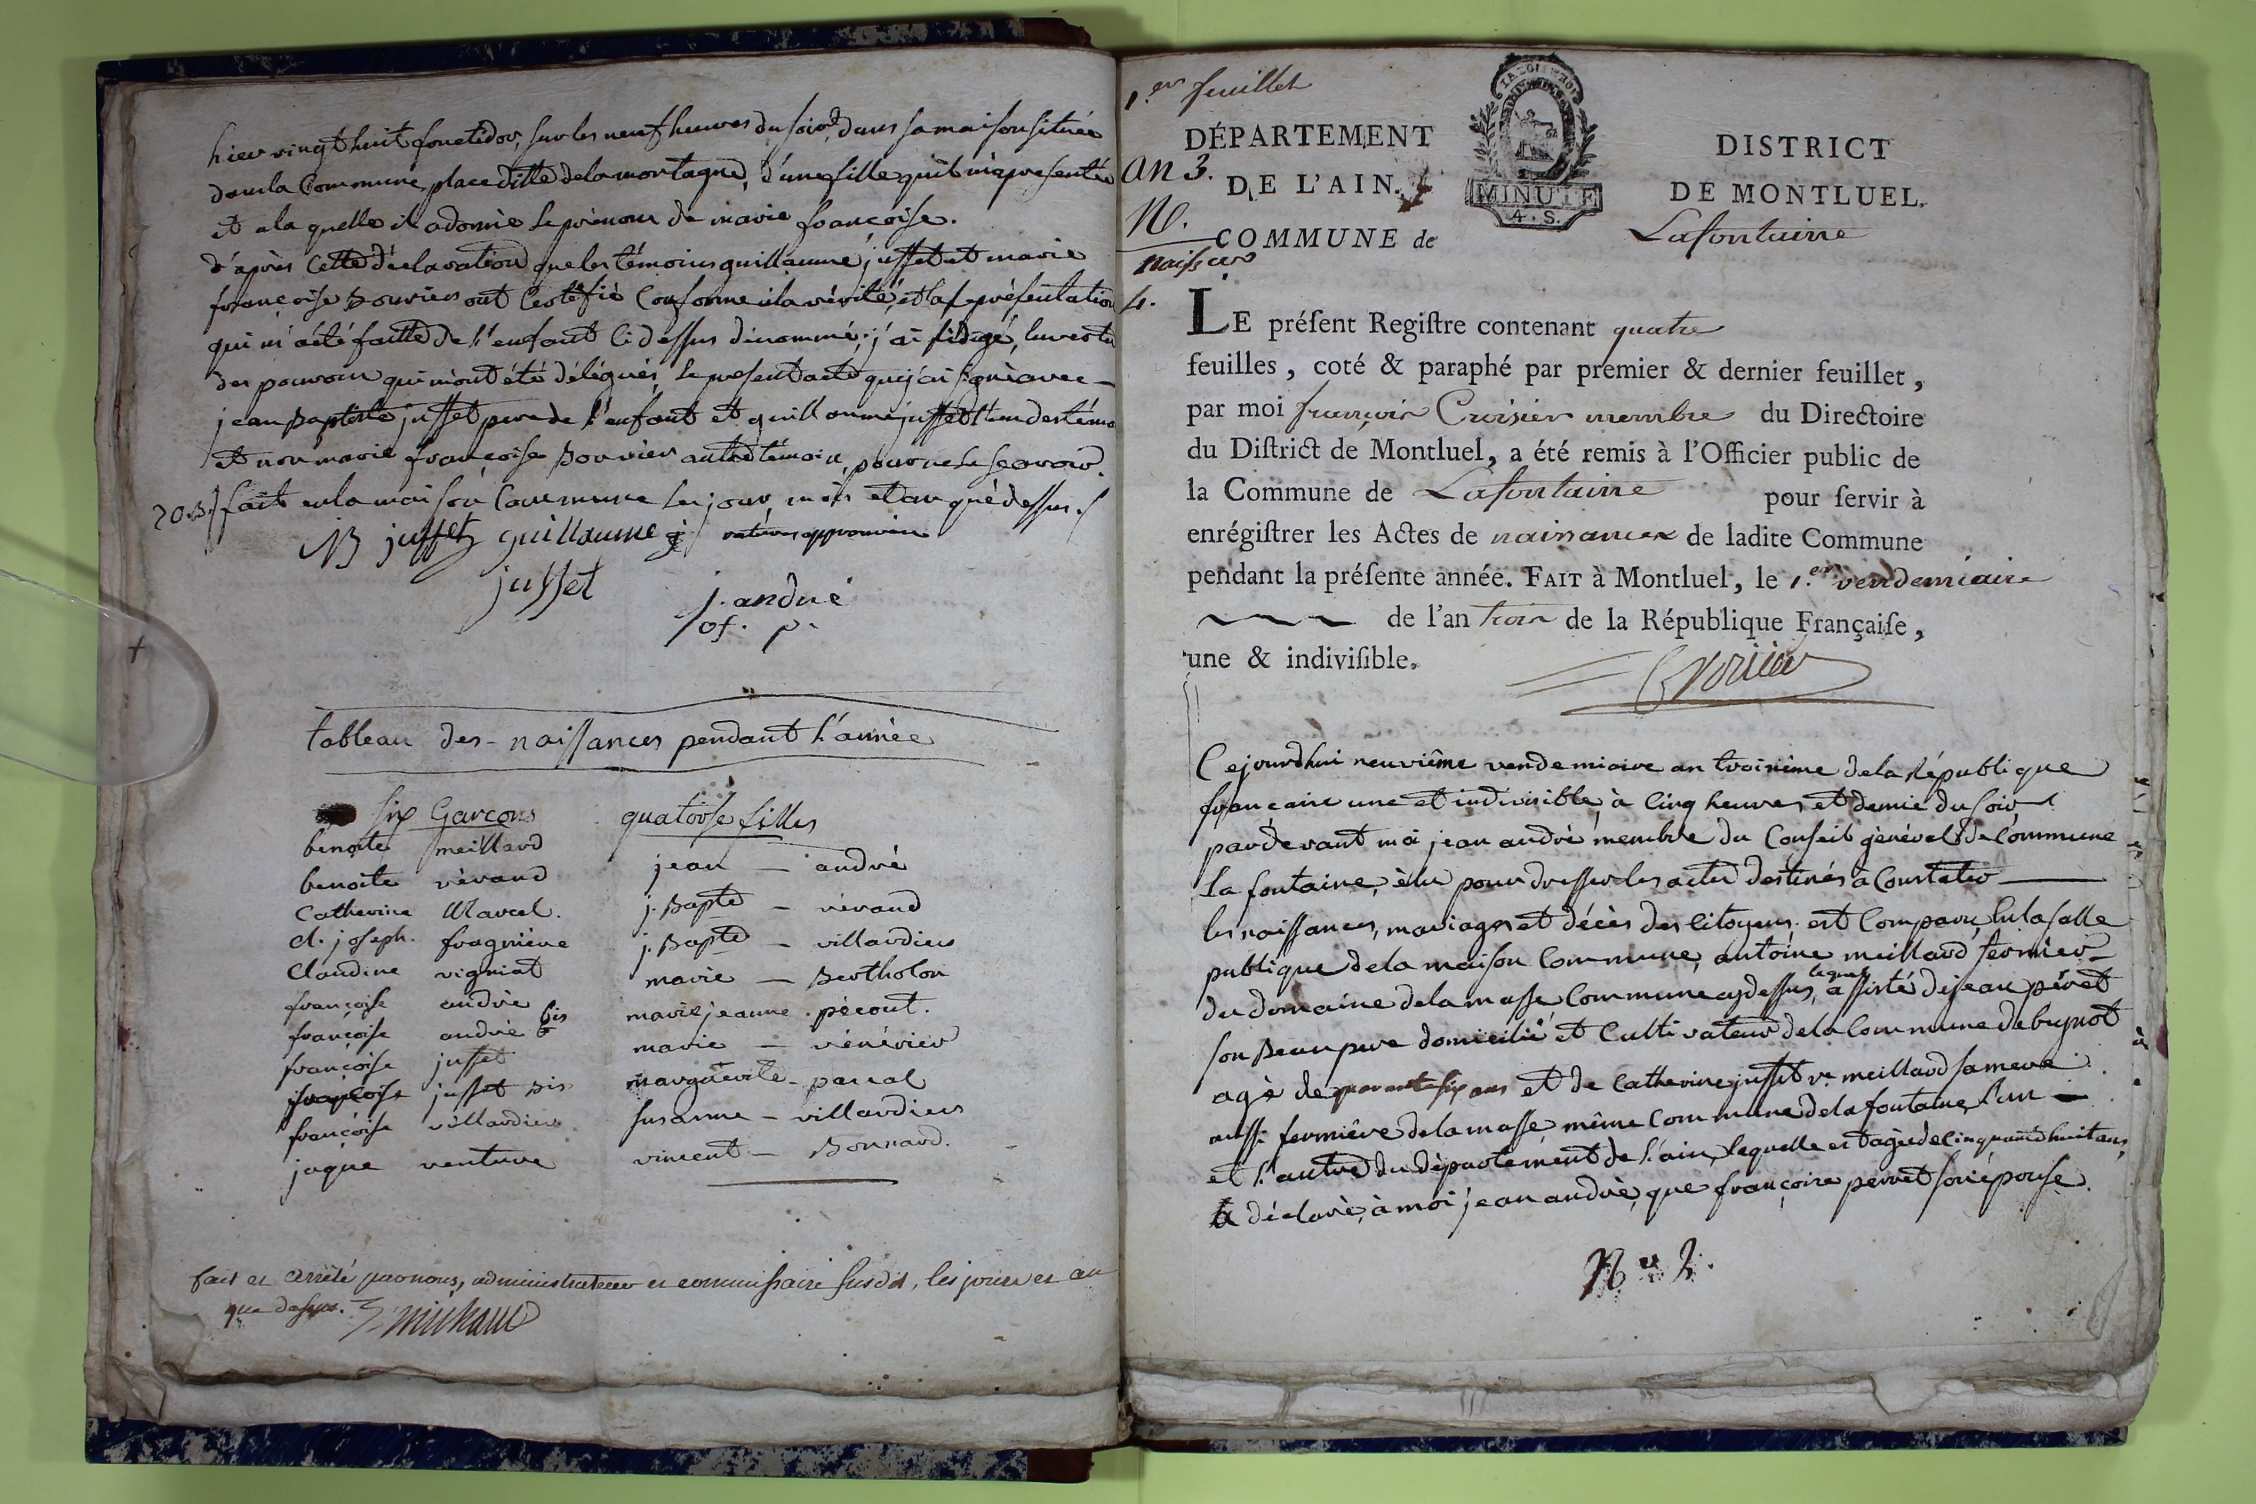 hier vingt huit fructidor, sur les neuf heures du soir, dans sa maison située
dans la Commune, place ditte de la montagne, d'une fille qu'il m'a présentée
et a la quelle il a donné le prénom de marie françoise.
d'après cette déclaration que les témoins guillaume jusset et marie
françoise Bouvier ont certifié conforme à la vérité, et la présentation
qui m'a été faitte de l'enfant ci dessus dénommé, j'ai rédigé, en vertu
des pouvoirs qui m'ont été délégués, le present acte que j'ai signé avec
jean Baptiste jusset pere de l'enfant et guillaume jusset l'un des témo
et non marie françoise Bouvier autre témoin, pour ne le scavoir.
fait en la maison Commune les jour, mois et an que dessus.
JB jusset guillaume j
jusset
j. andré
of. p.
tableau des naissances pendant l'année
six Garçons quatorse filles
benoite meillard
benoite véraud
Catherine Marcel.
cl. joseph. fragnière
Claudine vigniat
françoise andrée
françoise andrée bis
françoise jusset
françoise jusset bis
françoise villardier
jaque venture
jean — andré
j. Bapte — véraud
j. Bapte — villardier
marie — Bertholon
marie jeanne . pécout.
marie — vénérier
marguerite - pascal
susanne — villardier
vincent — Bonnard.
fait et arrêté par nous, administrateur et commissaire susdit, les jour et an
que dessus. Michaud
1.er feuillet
DÉPARTEMENT DISTRICT
an 3. DE L'AIN. DE MONTLUEL.
MINUTE
4. S.
N. COMMUNE de Lafontaine
naissces
4.
LE préſent Regiſtre contenant quatre
feuilles, coté & paraphé par premier & dernier feuillet,
par moi françois Croisier membre du Directoire
du Diſtrict de Montluel, a été remis à l'Officier public de
la Commune de Lafontaine pour ſervir à
enrégiſtrer les Actes de naissances de ladite Commune
pendant la préſente année. FAIT à Montluel, le 1.er vendemiaire
de l'an trois de la République Françaiſe,
une & indiviſible.
Croisier
Cejourdhui neuvième vendemiaire an troisième de la République
française une et indivisible, à cinq heures et demie du soir
pardevant moi jean andré membre du Conseil général de Commune
La fontaine, élu pour dresser les actes destinés à constater
les naissances, mariages et décès des citoyens, est comparu, en la salle
publique de la maison Commune, antoine meillard fermier
du domaine de la masse Commune cy dessus, lequel assisté de jean péret
son Beau pere domicilié et cultivateur de la Commune de
agé de quarante six ans et de Catherine jusset ve meillard sa mere
aussi fermière de la masse même Commune de la fontaine, l'un
et l'autre du département de l'ain, laquelle est agée de cinquante huit ans,
a déclaré, à moi jean andré, que françoise perret son épouse